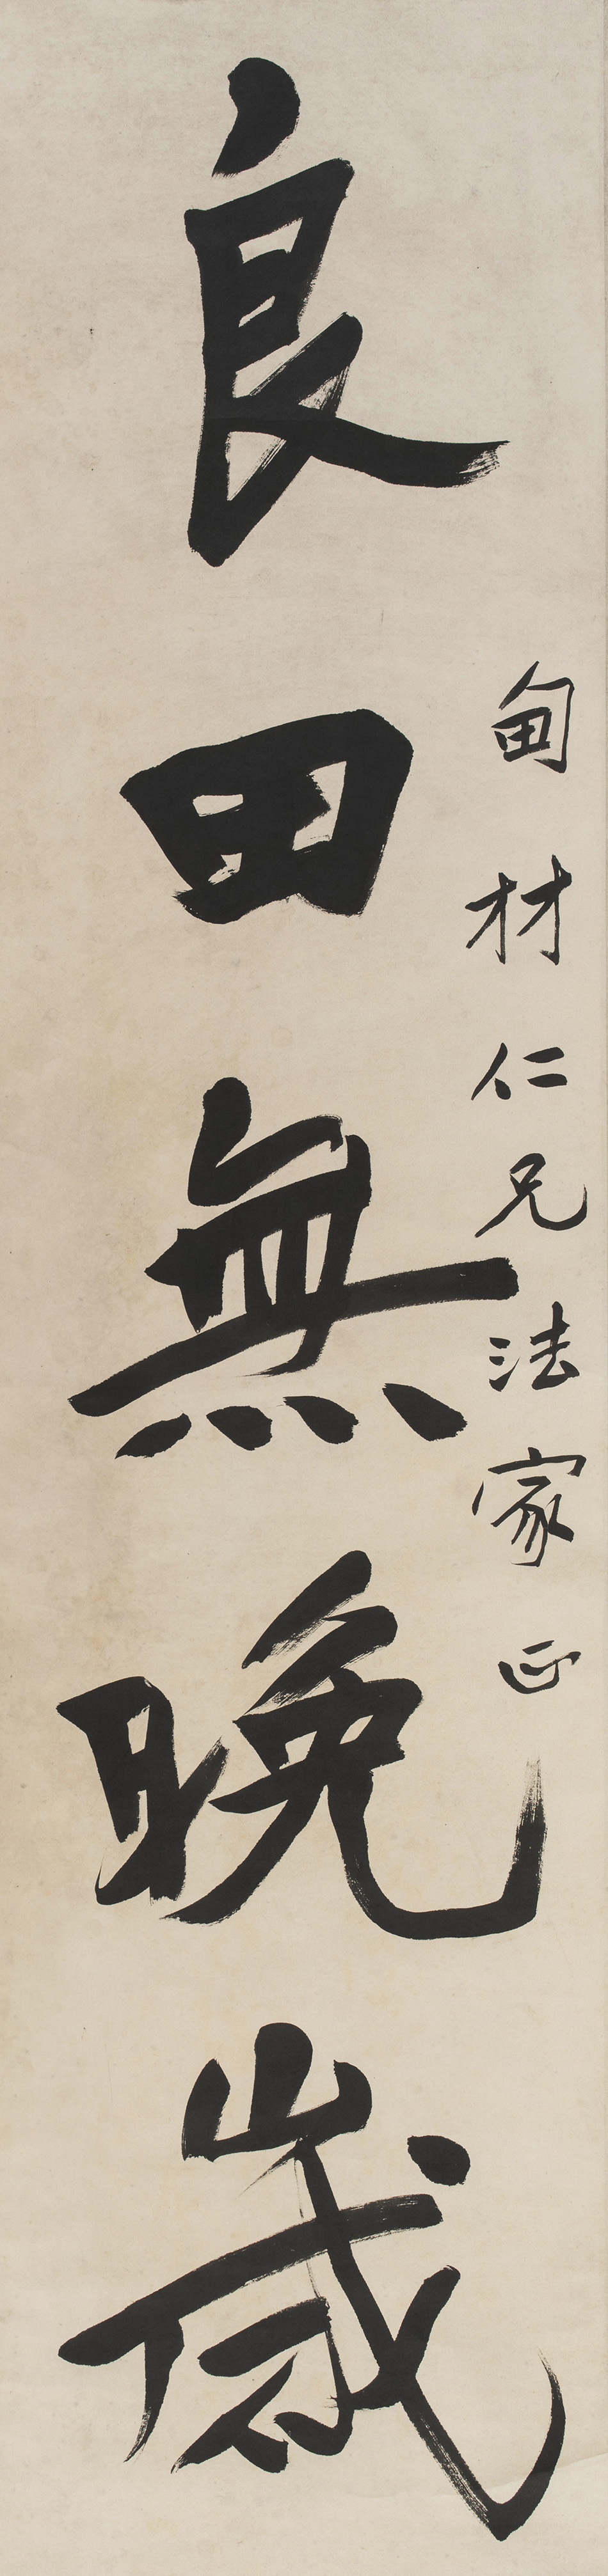 甸材仁兄法家正
良田無晚歲